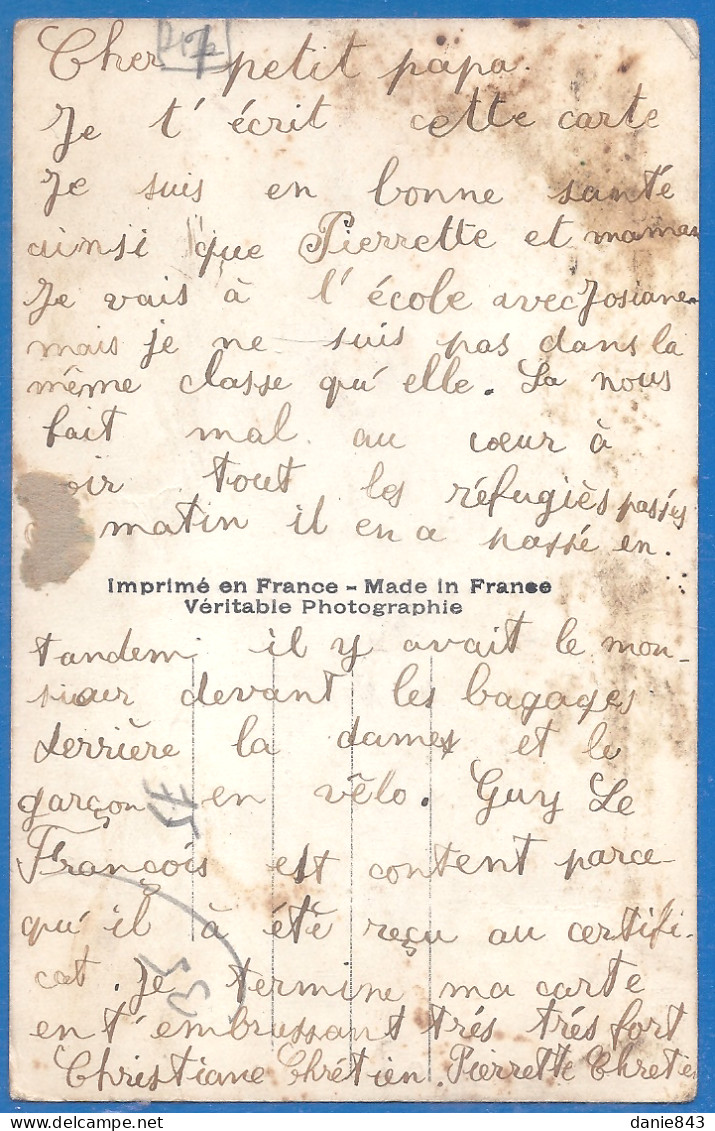 Cher petit papa.
Je t' écrit cette carte
Je suis en bonne santé
ainsi que Pierrette et maman
Je vais à l' école avec Josiane
mais je ne suis pas dans la
même classe qu' elle. Sa nous
fait mal au cœur à
oir tout les réfugiès passés
matin il en a passé en.
Imprimé en France - Made in France
Véritable Photographie
tandem il y avait le mon-
sieur devant les bagages
derrière la dames et le
garçon en vêlo. Guy Le
François est content parce
qu' il à été reçu au certifi-
cat. Je termine ma carte
en t' embrassant trés trés fort
Christiane Chrétien. Pierrette Chretie
© delcampe.net
danie843